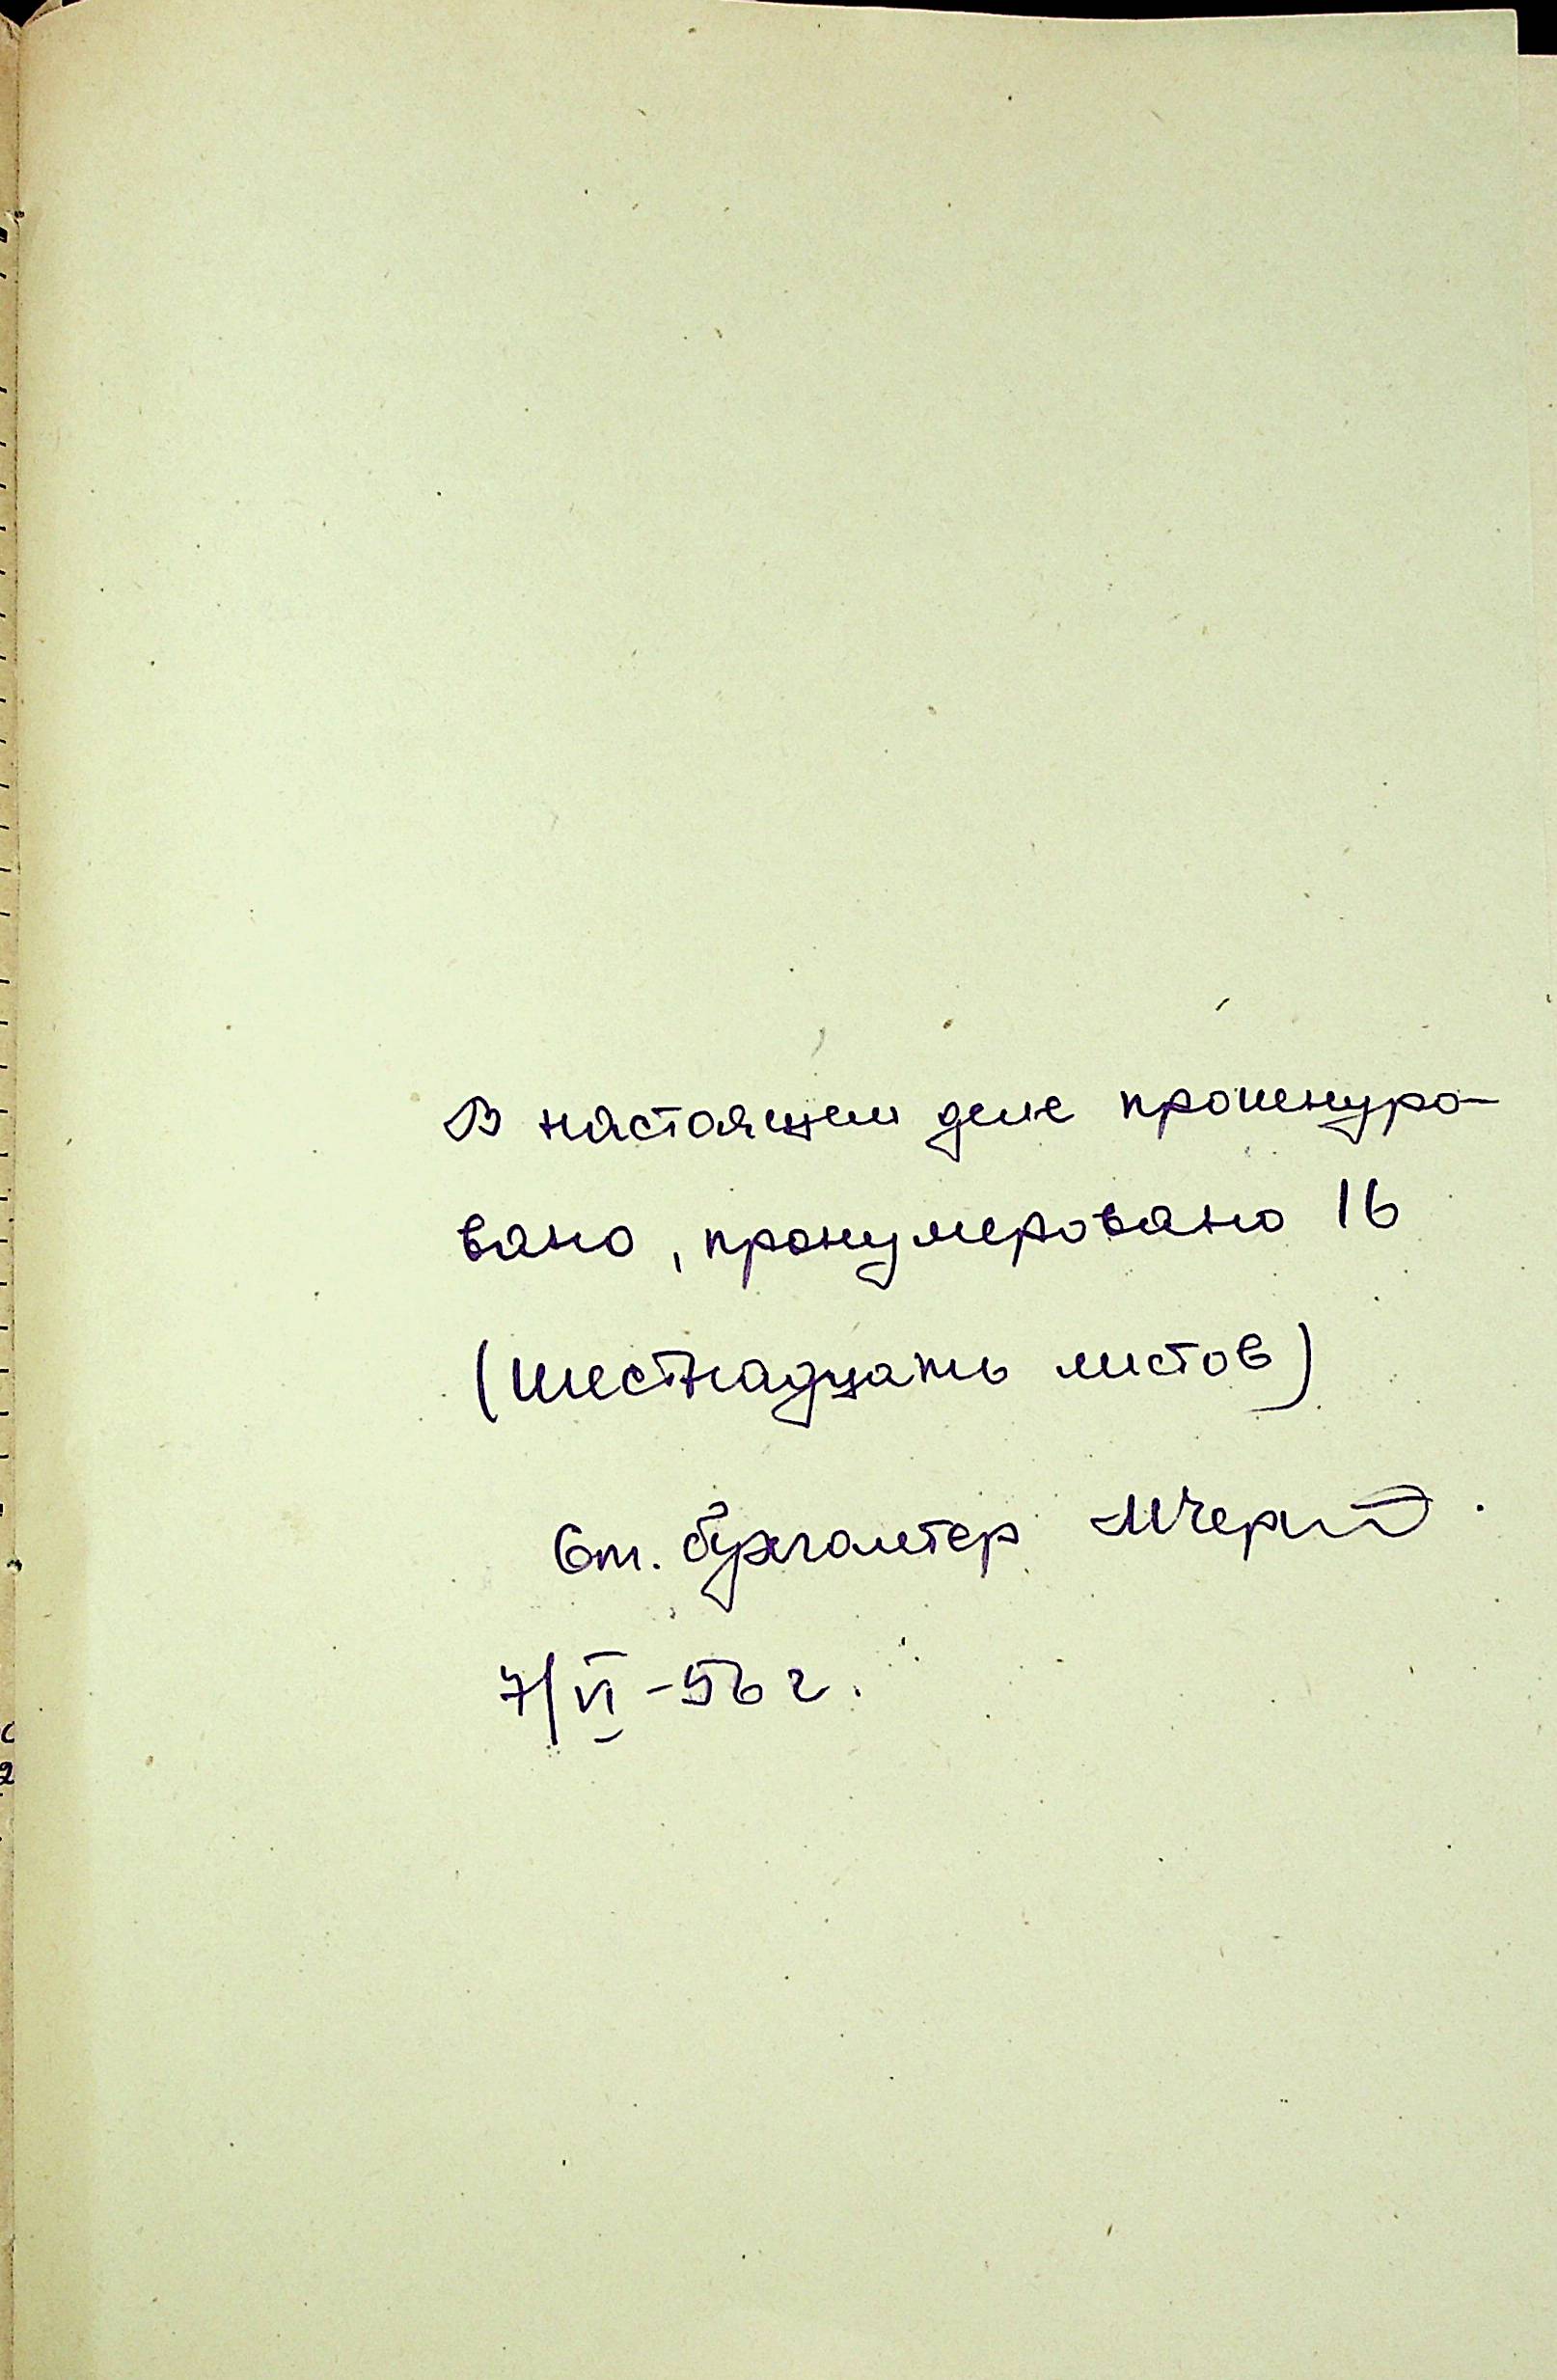 В настоящем деле прошнуро-
вано, пронумеровано 16
(шестнадцать листов)
Ст. бухгалтер
7/VI-56 г.